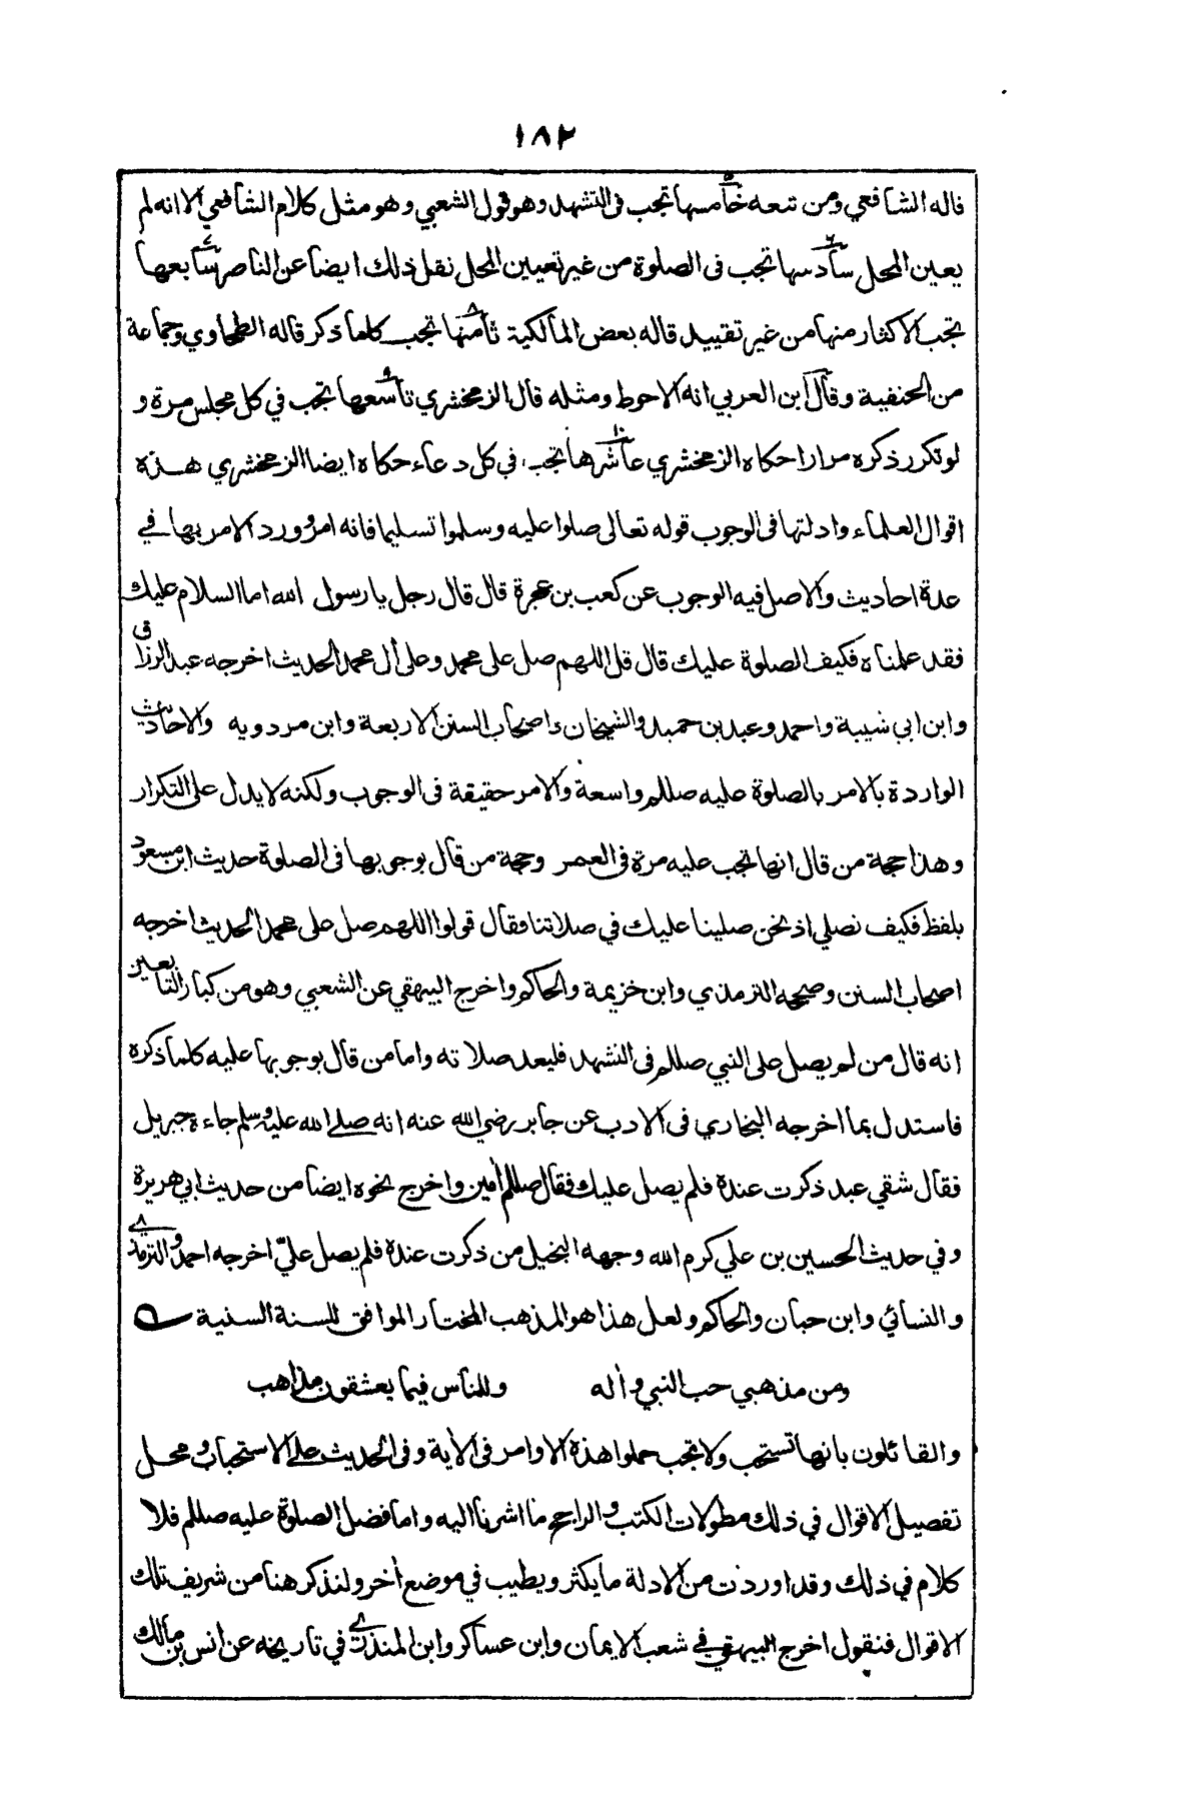 ١٨٢
قاله الشافعي ومن تبعه خامسها تجب فى التشهد وهو قول الشعبي وهو مثل كلام الشافعي الا انه لم
يعين المحل سادسها تجب فى الصلوة من غير تعيين المحل نقل ذلك ايضا عن الناصر سابعها
تجب الاكثار منها من غير تقييد قاله بعض المالكية ثامنها تجب كلما ذكر قاله الطحاوي وجماعة
من الحنفية وقال ابن العربي انه الاحوط ومثله قال الزمخشري تاسعها تجب في كل مجلس مرة و
لو تكرر ذكره مرارا حكاه الزمخشري عاشرها تجب في كل دعاء حكاه ايضا الزمخشري هذه
اقوال العلماء وادلتها فى الوجوب قوله تعالى صلوا عليه وسلموا تسليما فانه امر وورد الامر بها في
عدة احاديث والاصل فيه الوجوب عن كعب بن عجرة قال قال رجل يا رسول الله اما السلام عليك
فقد علمناه فكيف الصلوة عليك قال قل اللهم صل على محمد وعلى أل محمد الحديث اخرجه عبد الرزاق
وابن ابي شيبة واحمد وعبد بن حميد والشيخان واصحاب السنن الاربعة وابن مردويه والاحاديث
الواردة بالامر بالصلوة عليه صللم واسعة والامر حقيقة فى الوجوب ولكنه لا يدل على التكرار
وهذا حجة من قال انها تجب عليه مرة فى العمر وحجة من قال بوجوبها فى الصلوة حديث ابن مسعود
بلفظ فكيف نصلي اذ نحن صلينا عليك في صلاتنا فقال قولوا اللهم صل على محمد الحديث اخرجه
اصحاب السنن وصححه الترمذي وابن خزيمة والحاكم واخرج البيهقي عن الشعبي وهو من كبار التابعين
انه قال من لم يصل على النبي صللم فى التشهد فليعد صلاته واما من قال بوجوبها عليه كلما ذكره
فاستدل بما اخرجه البخاري فى الادب عن جابر رضي الله عنه انه صلى الله عليه وسلم جاءه جبريل
فقال شقي عبد ذكرت عنده فلم يصل عليك فقال صللم أمين واخرج نحوه ايضا من حديث ابي هريرة
وفي حديث الحسين بن علي كرم الله وجهه البخيل من ذكرت عنده فلم يصل عليّ اخرجه احمد والترمذي
والنسائي وابن حبان والحاكم ولعل هذا هو المذهب المختار الموافق للسنة السنية
ومن مذهبي حب النبي وأله وللناس فيما يعشقون مذاهب
والقائلون بانها تستحب ولا تجب حملوا هذه الاوامر فى الأية وفى الحديث على الاستحباب ومحل
تفصيل الاقوال في ذلك مطولات الكتب والراجح ما اشرنا اليه واما فضل الصلوة عليه صللم فلا
كلام في ذلك وقد اوردت من الادلة ما يكثر ويطيب في موضع أخر ولنذكر هنا من شريف تلك
الاقوال فنقول اخرج البيهقي في شعب الايمان وابن عساكر وابن المنذري في تاريخه عن انس بن مالك